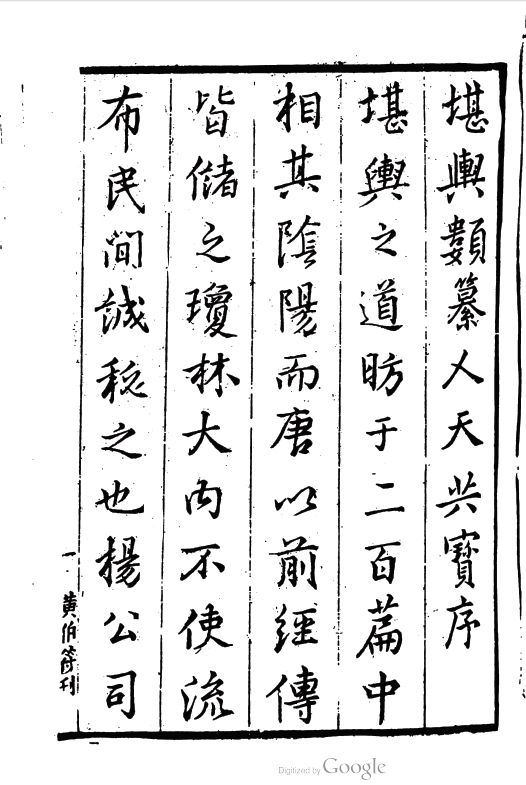 堪輿類纂人天共寶序
堪輿之道昉于二百篇中
相其陰陽而唐以前經傳
皆儲之瓊林大內不使流
布民間誠秘之也楊公司
一
黃伯符刊
Digitized by Google